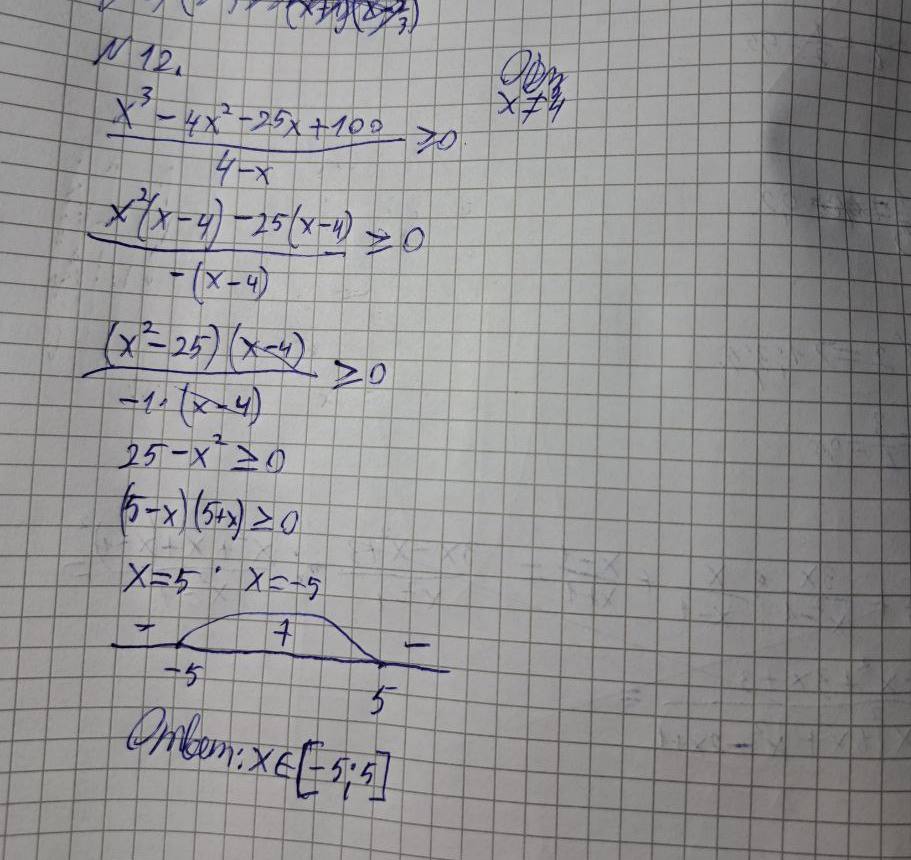 N 12.
x³ - 4x² - 25x + 100 / 4 - x ≥ 0
x²(x - 4) - 25(x - 4) / -(x - 4) ≥ 0
(x² - 25)(x - 4) / -1·(x - 4) ≥ 0
25 - x² ≥ 0
(5 - x)(5 + x) ≥ 0
x = 5 x = -5
- + -
-5 5
Ответ: x ∈ [-5; 5]